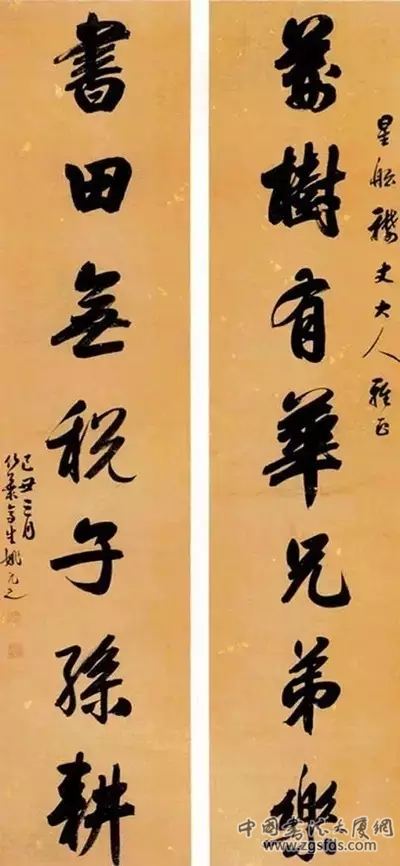 樹有華兄弟樂
星丈大人雅正
書田無稅子孫耕
己丑三月
竹葉亭生姚元之
中国书法大厦网
www.zgsfds.com